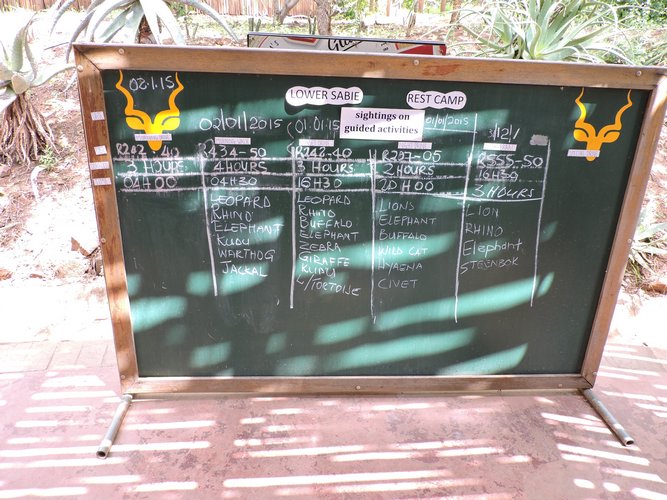 02.1.15
LOWER SABIE
REST CAMP
sightings on
guided activities
02/01/2015
01/01/2015
R242-40
R434-50
R242-40
R227-05
R555-50
3 HOURS
4 HOURS
3 HOURS
2 HOURS
16H30
04H00
04H30
16H30
20H00
3 HOURS
LEOPARD
RHINO
ELEPHANT
KUDU
WARTHOG
JACKAL
LEOPARD
RHINO
BUFFALO
ELEPHANT
ZEBRA
GIRAFFE
KUDU
L/TORTOISE
LIONS
ELEPHANT
BUFFALO
WILD CAT
HYAENA
CIVET
LION
RHINO
Elephant
STEENBOK